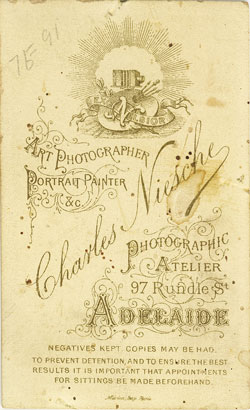 75 91
ART PHOTOGRAPHER
PORTRAIT PAINTER
&C.
Charles Niesche
PHOTOGRAPHIC
ATELIER
97 Rundle St
ADELAIDE
NEGATIVES KEPT. COPIES MAY BE HAD.
TO PREVENT DETENTION, AND TO ENSURE THE BEST
RESULTS IT IS IMPORTANT THAT APPOINTMENTS
FOR SITTINGS BE MADE BEFOREHAND.